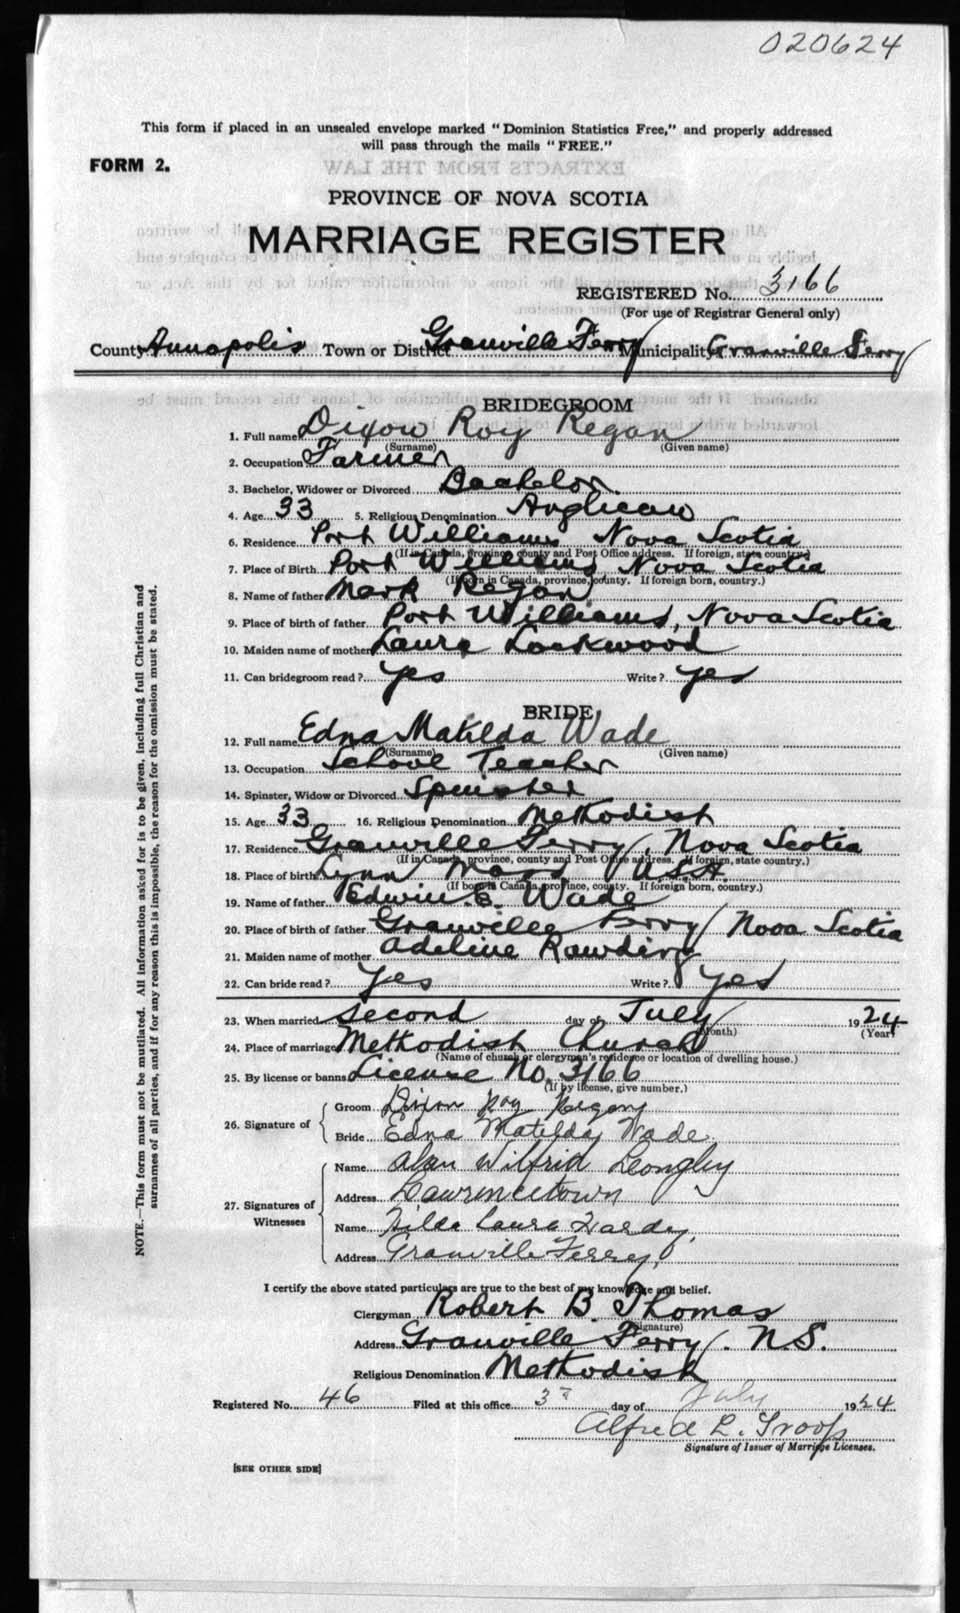 020624
This form if placed in an unsealed envelope marked "Dominion Statistics Free," and properly addressed
will pass through the mails "FREE."
FORM 2.
EXTRACTS FROM THE LAW
PROVINCE OF NOVA SCOTIA
MARRIAGE REGISTER
REGISTERED No. 3166
(For use of Registrar General only)
County Annapolis Town or District Granville Ferry Municipality Granville Ferry
BRIDEGROOM
1. Full name Dixon Roy Regan
(Surname) (Given name)
2. Occupation Farmer
3. Bachelor, Widower or Divorced Bachelor
4. Age 33 5. Religious Denomination Anglican
6. Residence Port Williams Nova Scotia
(If in Canada, province, county and Post Office address. If foreign, state country.)
7. Place of Birth Port Williams Nova Scotia
(If born in Canada, province, county. If foreign born, country.)
8. Name of father Mark Regan
9. Place of birth of father Port Williams, Nova Scotia
10. Maiden name of mother Laura Lockwood
11. Can bridegroom read? Yes Write? Yes
BRIDE
12. Full name Edna Matilda Wade
(Surname) (Given name)
13. Occupation School Teacher
14. Spinster, Widow or Divorced Spinster
15. Age 33 16. Religious Denomination Methodist
17. Residence Granville Ferry, Nova Scotia
(If in Canada, province, county and Post Office address. If foreign, state country.)
18. Place of birth Lynn Mass U.S.A.
(If born in Canada, province, county. If foreign born, country.)
19. Name of father Edwin E. Wade
20. Place of birth of father Granville Ferry Nova Scotia
21. Maiden name of mother Adeline Rawding
22. Can bride read? Yes Write? Yes
23. When married second day of July 1924
(Month) (Year)
24. Place of marriage Methodist Church
(Name of church or clergyman's residence or location of dwelling house.)
25. By license or banns License No. 3166
(If by license, give number.)
26. Signature of
Groom Dixon Roy Regan
Bride Edna Matilda Wade
27. Signatures of Witnesses
Name Alan Wilfrid Longley
Address Lawrencetown
Name Hilda Laura Hardy,
Address Granville Ferry,
I certify the above stated particulars are true to the best of my knowledge and belief.
Clergyman Robert B. Thomas
(Signature)
Address Granville Ferry. N.S.
Religious Denomination Methodist
Registered No. 46 Filed at this office 3rd day of July 1924
Alfred L. Troop
Signature of Issuer of Marriage Licenses.
[SEE OTHER SIDE]
NOTE.—This form must not be mutilated. All information asked for is to be given, including full Christian and
surnames of all parties, and if for any reason this is impossible, the reason for the omission must be stated.